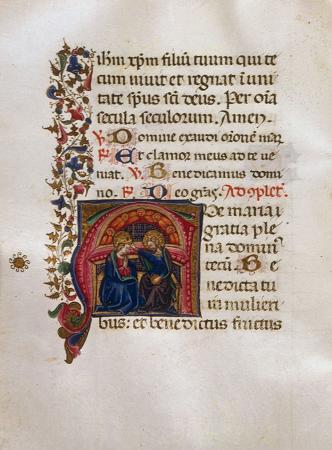 ihm xp̄m filiū tuum qui te
cum uiuit et regnat ī uni
tate sp̄us sc̄i deus. Per oīa
secula seculorum. Amen.
℣ Domine exaudi or̄ōnem meā
℟ Et clamor meus ad te ue
niat. ℣ Benedicamus domi
no. ℟ Deo gr̄as. Ad ↄplet̄
Ue maria
gratia ple
na dominꝰ
tecū Be
nedicta tu
in mulieri
bus: et benedictus fructus